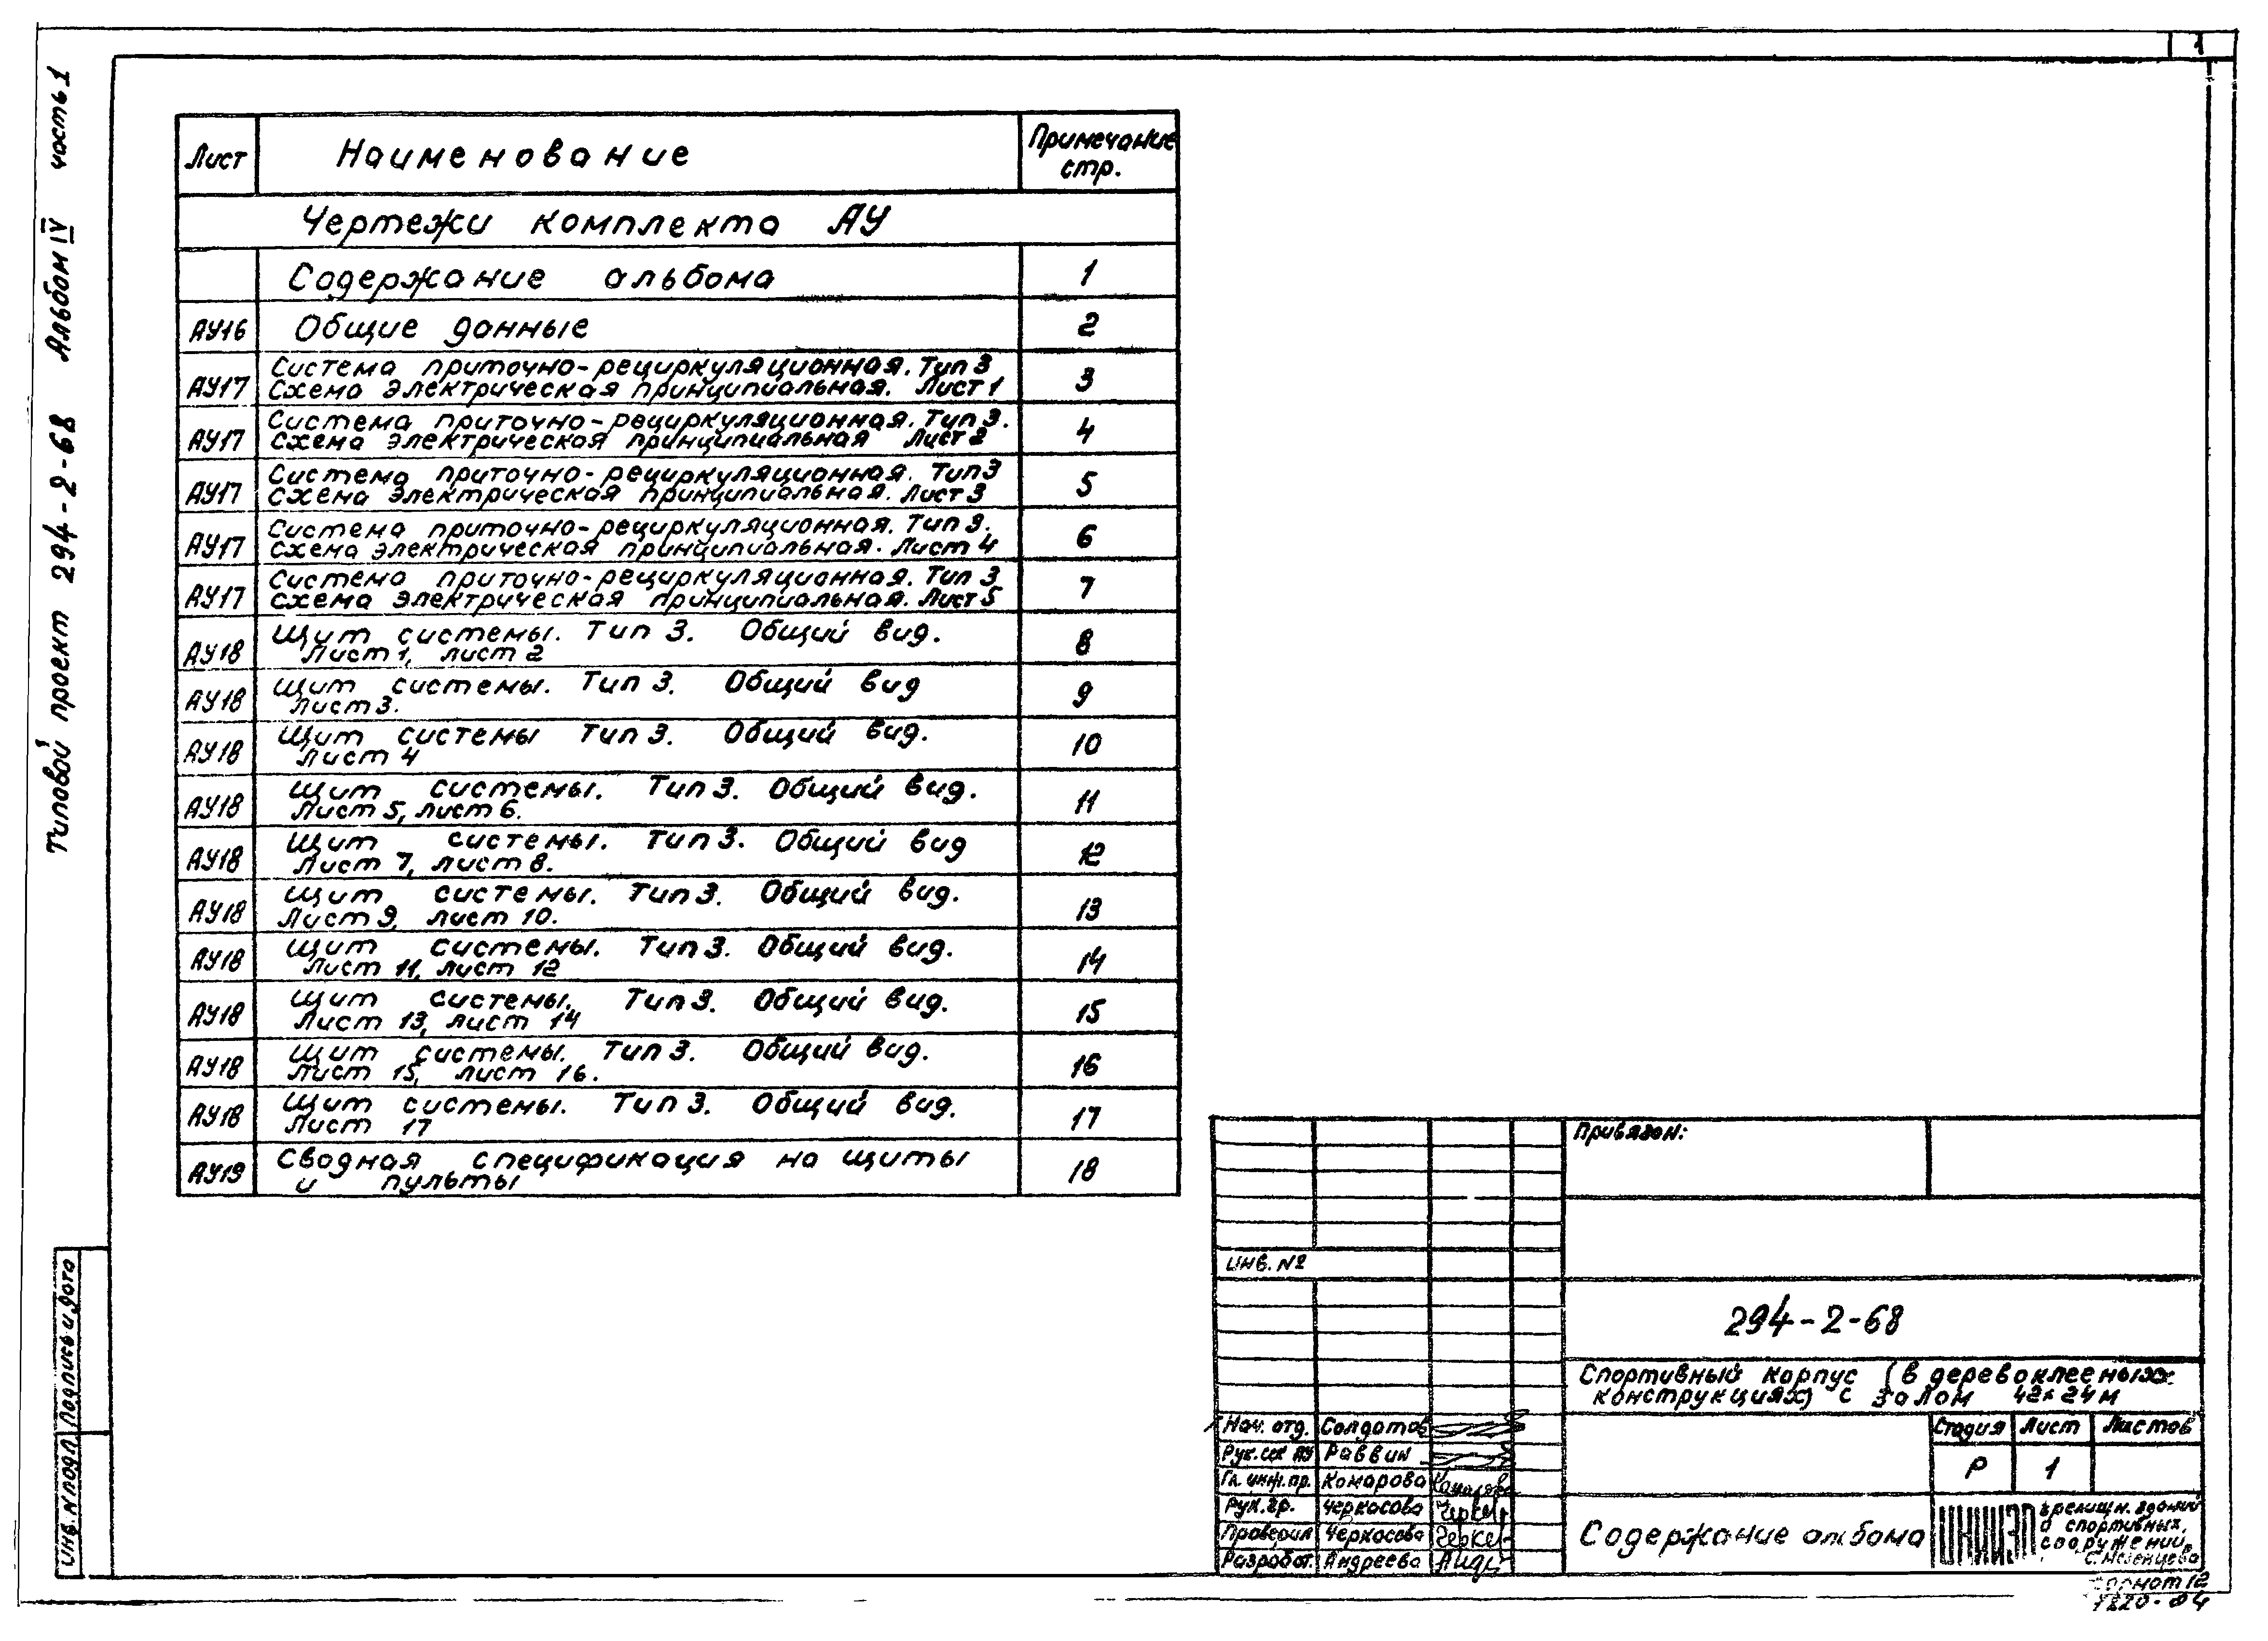 1
Типовой проект 294-2-68 Альбом IV часть 1
Лист Наименование Примечание стр.
Чертежи комплекта АУ
Содержание альбома 1
АУ16 Общие данные 2
АУ17 Система приточно-рециркуляционная. Тип 3
Схема электрическая принципиальная. Лист 1 3
АУ17 Система приточно-рециркуляционная. Тип 3.
Схема электрическая принципиальная Лист 2 4
АУ17 Система приточно-рециркуляционная. Тип 3
Схема электрическая принципиальная. Лист 3 5
АУ17 Система приточно-рециркуляционная. Тип 3.
Схема электрическая принципиальная. Лист 4 6
АУ17 Система приточно-рециркуляционная. Тип 3
Схема электрическая принципиальная. Лист 5 7
АУ18 Щит системы. Тип 3. Общий вид.
Лист 1, лист 2 8
АУ18 Щит системы. Тип 3. Общий вид
Лист 3. 9
АУ18 Щит системы Тип 3. Общий вид.
Лист 4 10
АУ18 Щит системы. Тип 3. Общий вид.
Лист 5, лист 6. 11
АУ18 Щит системы. Тип 3. Общий вид
Лист 7, лист 8. 12
АУ18 Щит системы. Тип 3. Общий вид.
Лист 9, лист 10. 13
АУ18 Щит системы. Тип 3. Общий вид.
Лист 11, лист 12 14
АУ18 Щит системы. Тип 3. Общий вид.
Лист 13, лист 14 15
АУ18 Щит системы. Тип 3. Общий вид.
Лист 15, лист 16. 16
АУ18 Щит системы. Тип 3. Общий вид.
Лист 17 17
АУ19 Сводная спецификация на щиты
и пульты 18
Привязан:
инв. №
294-2-68
Спортивный корпус (в деревоклееных
конструкциях) с залом 42х24м
Нач. отд. Солдатов
Рук. сек АУ Раввин
Гл. инж. пр. Комарова
Рук. гр. Черкасова
Проверил Черкасова
Разработ. Андреева
Стадия Лист Листов
Р 1
Содержание альбома
ЦНИИЭП зрелищн. зданий
и спортивных
сооружений
Формат 12
Инв. № подл. Подпись и дата